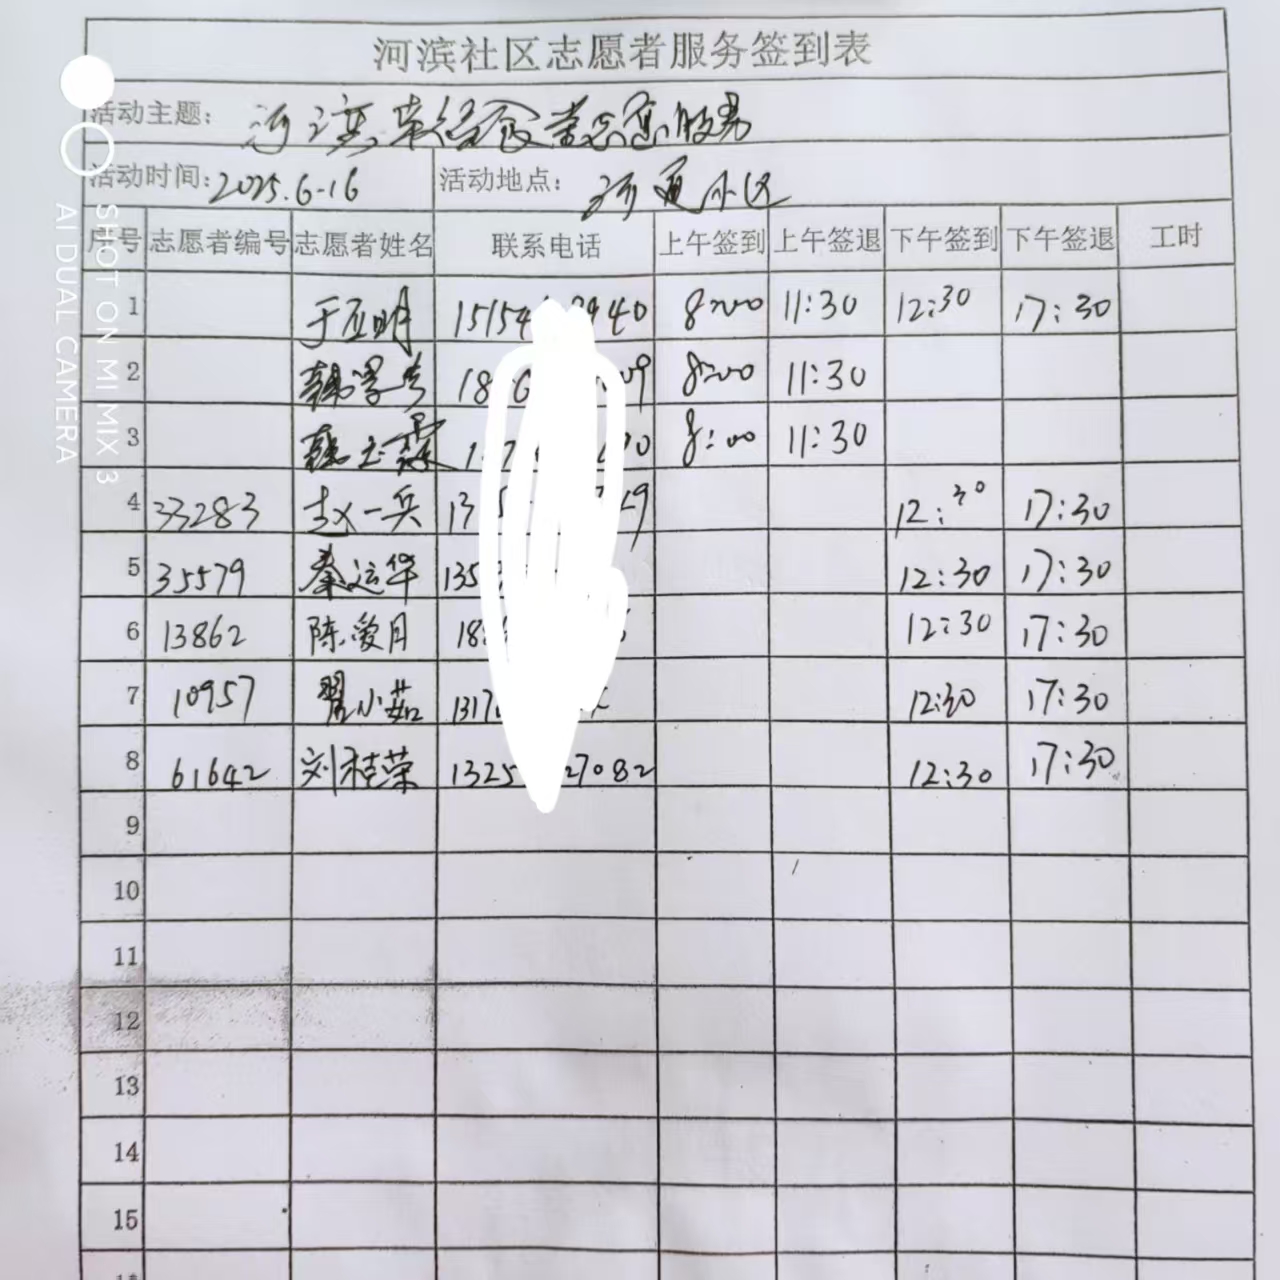 河滨社区志愿者服务签到表
活动主题: 河滨幸福食堂志愿服务
活动时间: 2025.6-16 活动地点: 河通小区
序号 志愿者编号 志愿者姓名 联系电话 上午签到 上午签退 下午签到 下午签退 工时
1 于亚明 15154 940 8:00 11:30 12:30 17:30
2 韩学 18 09 8:00 11:30
3 8:00 11:30
4 33283 赵一兵 13 19 12:30 17:30
5 35579 秦运华 135 12:30 17:30
6 13862 陈爱月 18 12:30 17:30
7 10957 翟小茹 1317 12:30 17:30
8 61642 刘桂荣 1325 27082 12:30 17:30
9
10
11
12
13
14
15
SHOT ON MI MIX 3
AI DUAL CAMERA